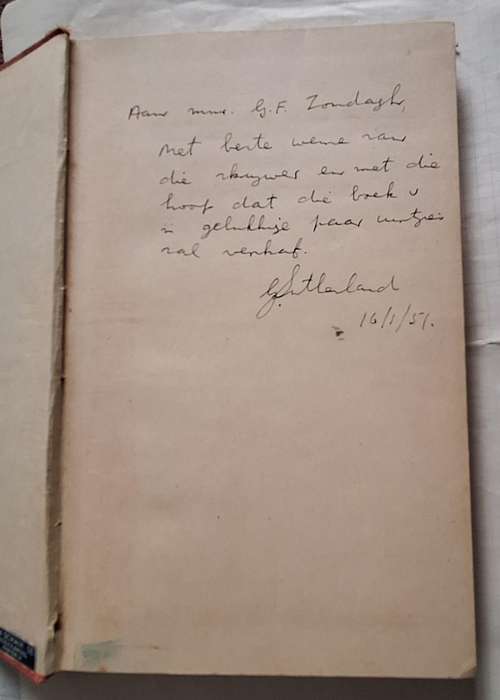 Aan mnr. G. F. Zondagh,
Met beste wense van
die skrywer en met die
hoop dat die boek u
'n gelukkige paar uurtjies
sal verskaf.
G. Sutherland
16/1/51.